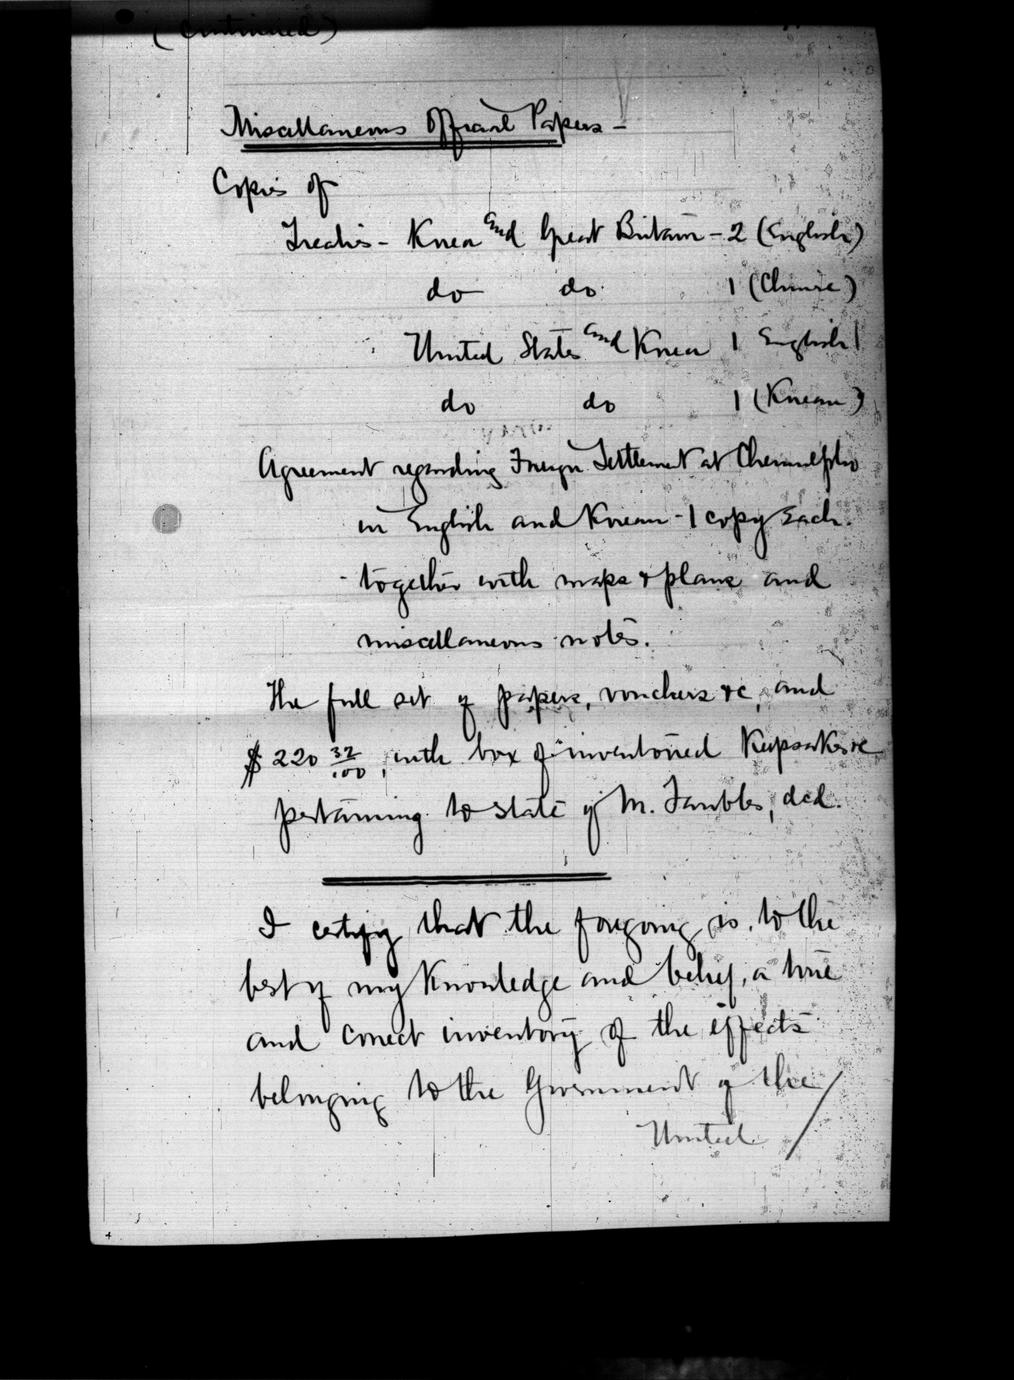 (Continued)
Miscellaneous Official Papers -
Copies of
Treaties - Korea and Great Britain - 2 (English)
do do 1 (Chinese)
United States and Korea 1 English)
do do 1 (Korean)
Agreement regarding Foreign Settlement at Chemulpho
in English and Korean - 1 copy each
together with maps & plans and
miscellaneous notes.
The full set of papers, vouchers &c, and
$220 32/100, with box of inventoried Keepsakes &c
pertaining to state of M.
, dcd.
I certify that the foregoing is, to the
best of my Knowledge and belief, a true
and correct inventory of the effects
belonging to the Government of the
United